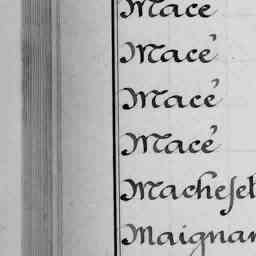 Macé
Macé
Macé
Macé
Macheſel
Maignan